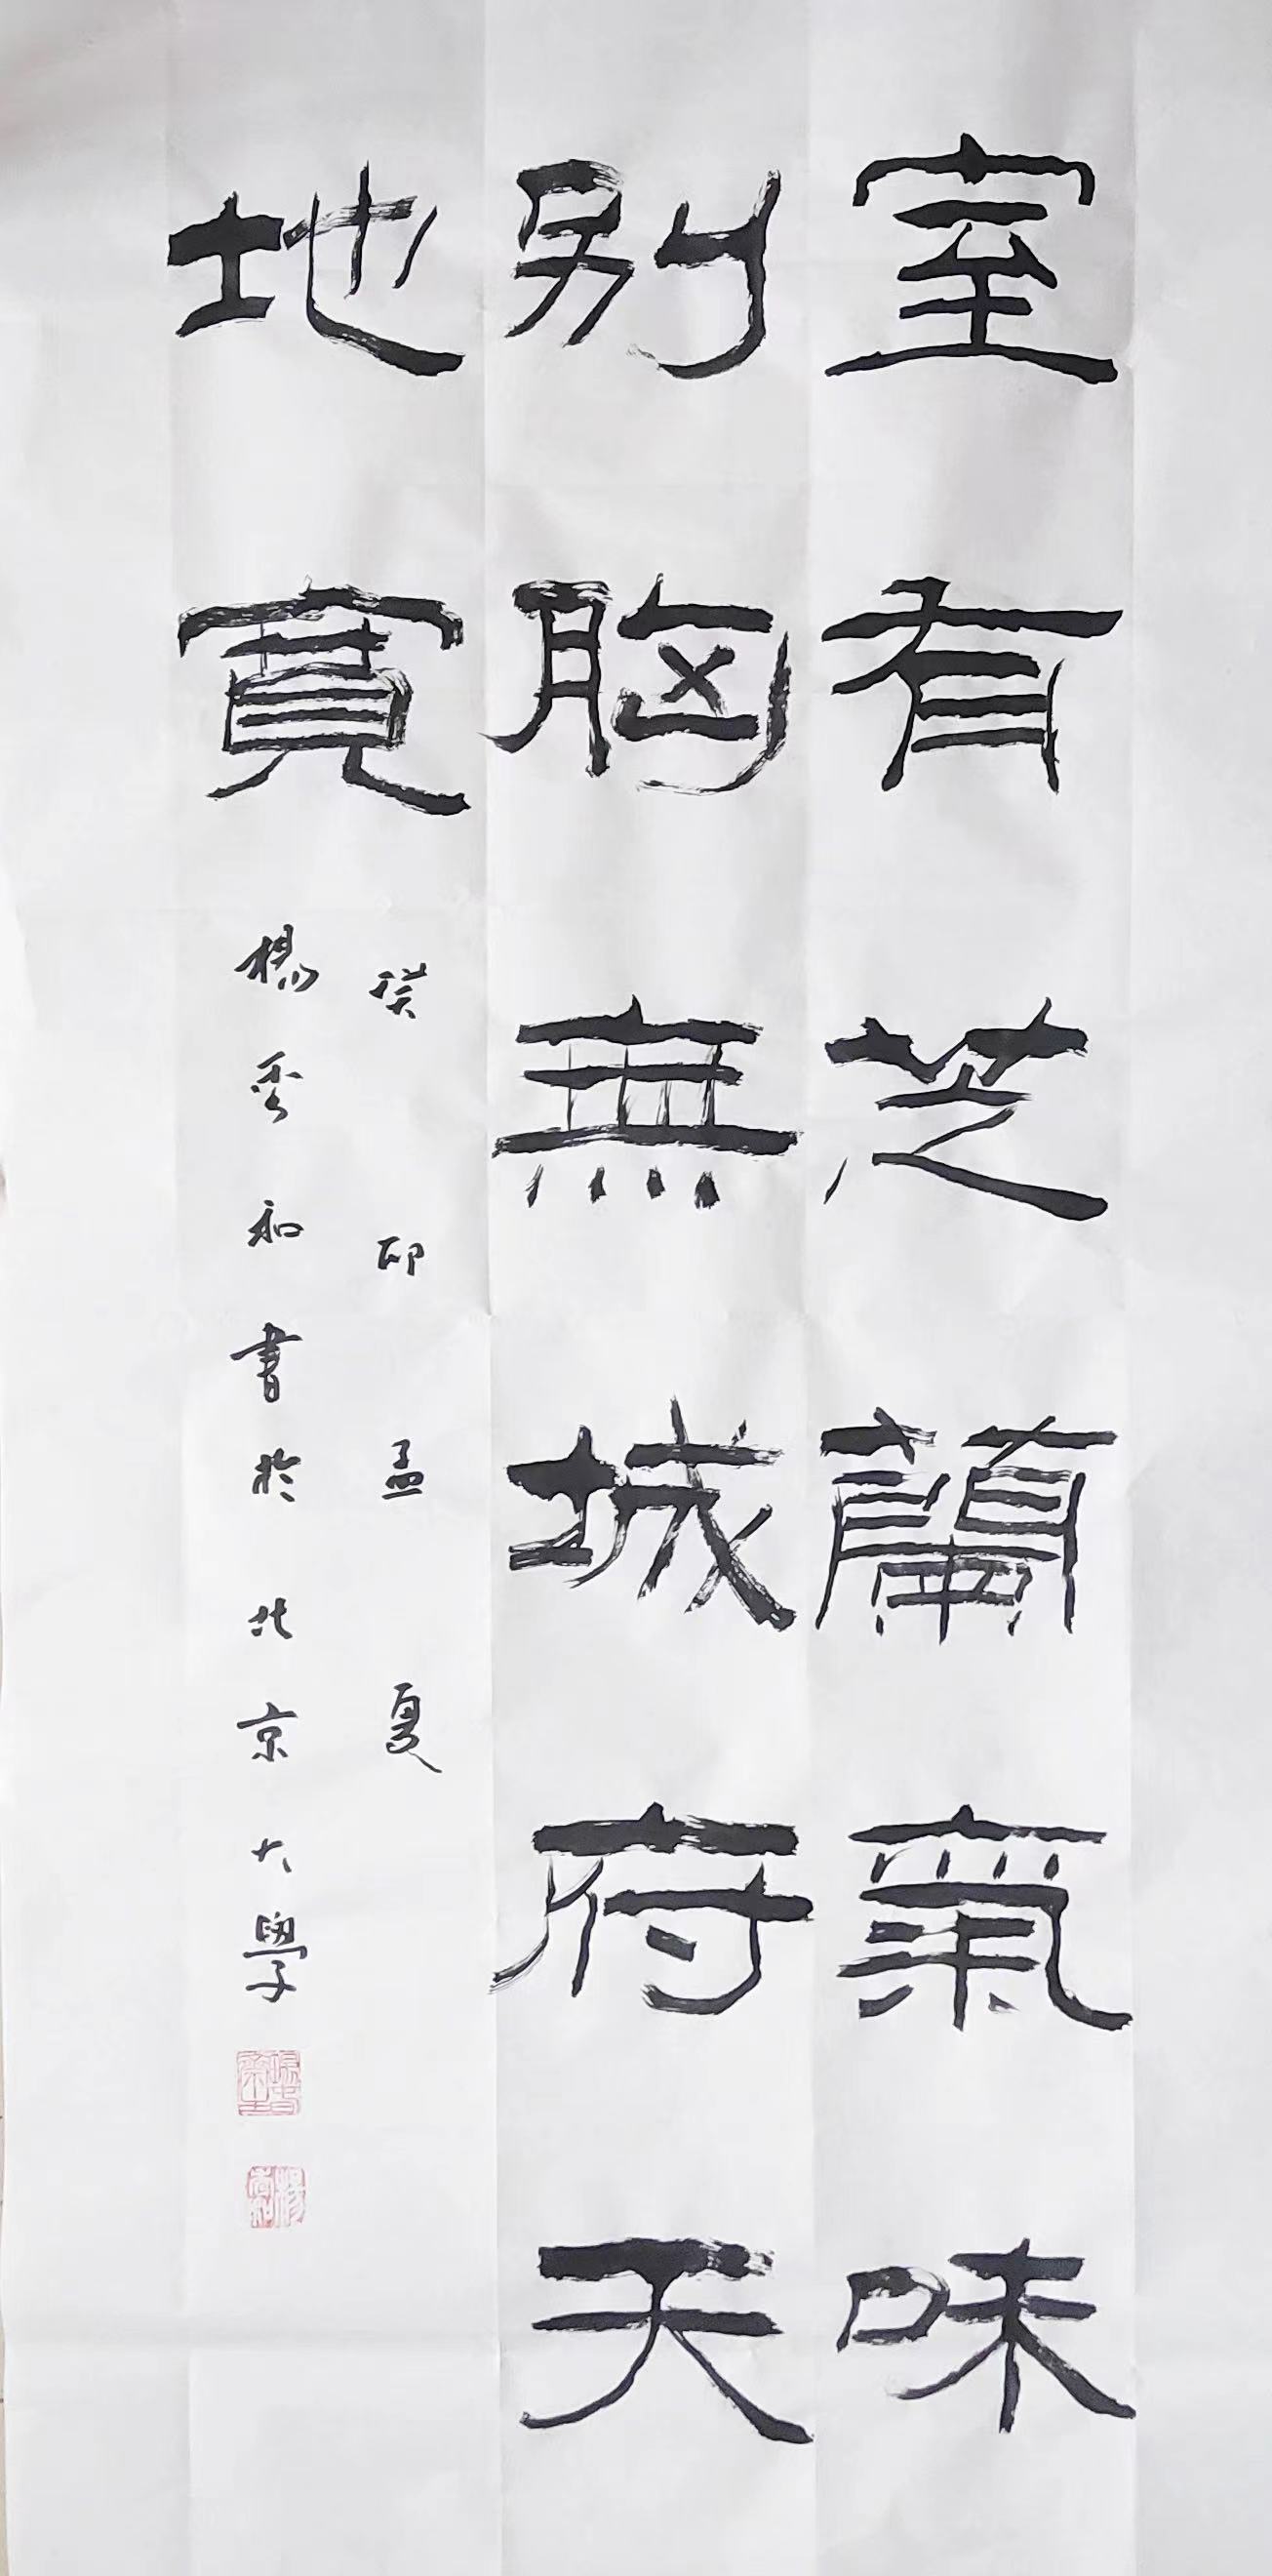 室有芝蘭氣味
別胸無城府天
地寬
癸卯孟夏
楊秀和書於北京大學